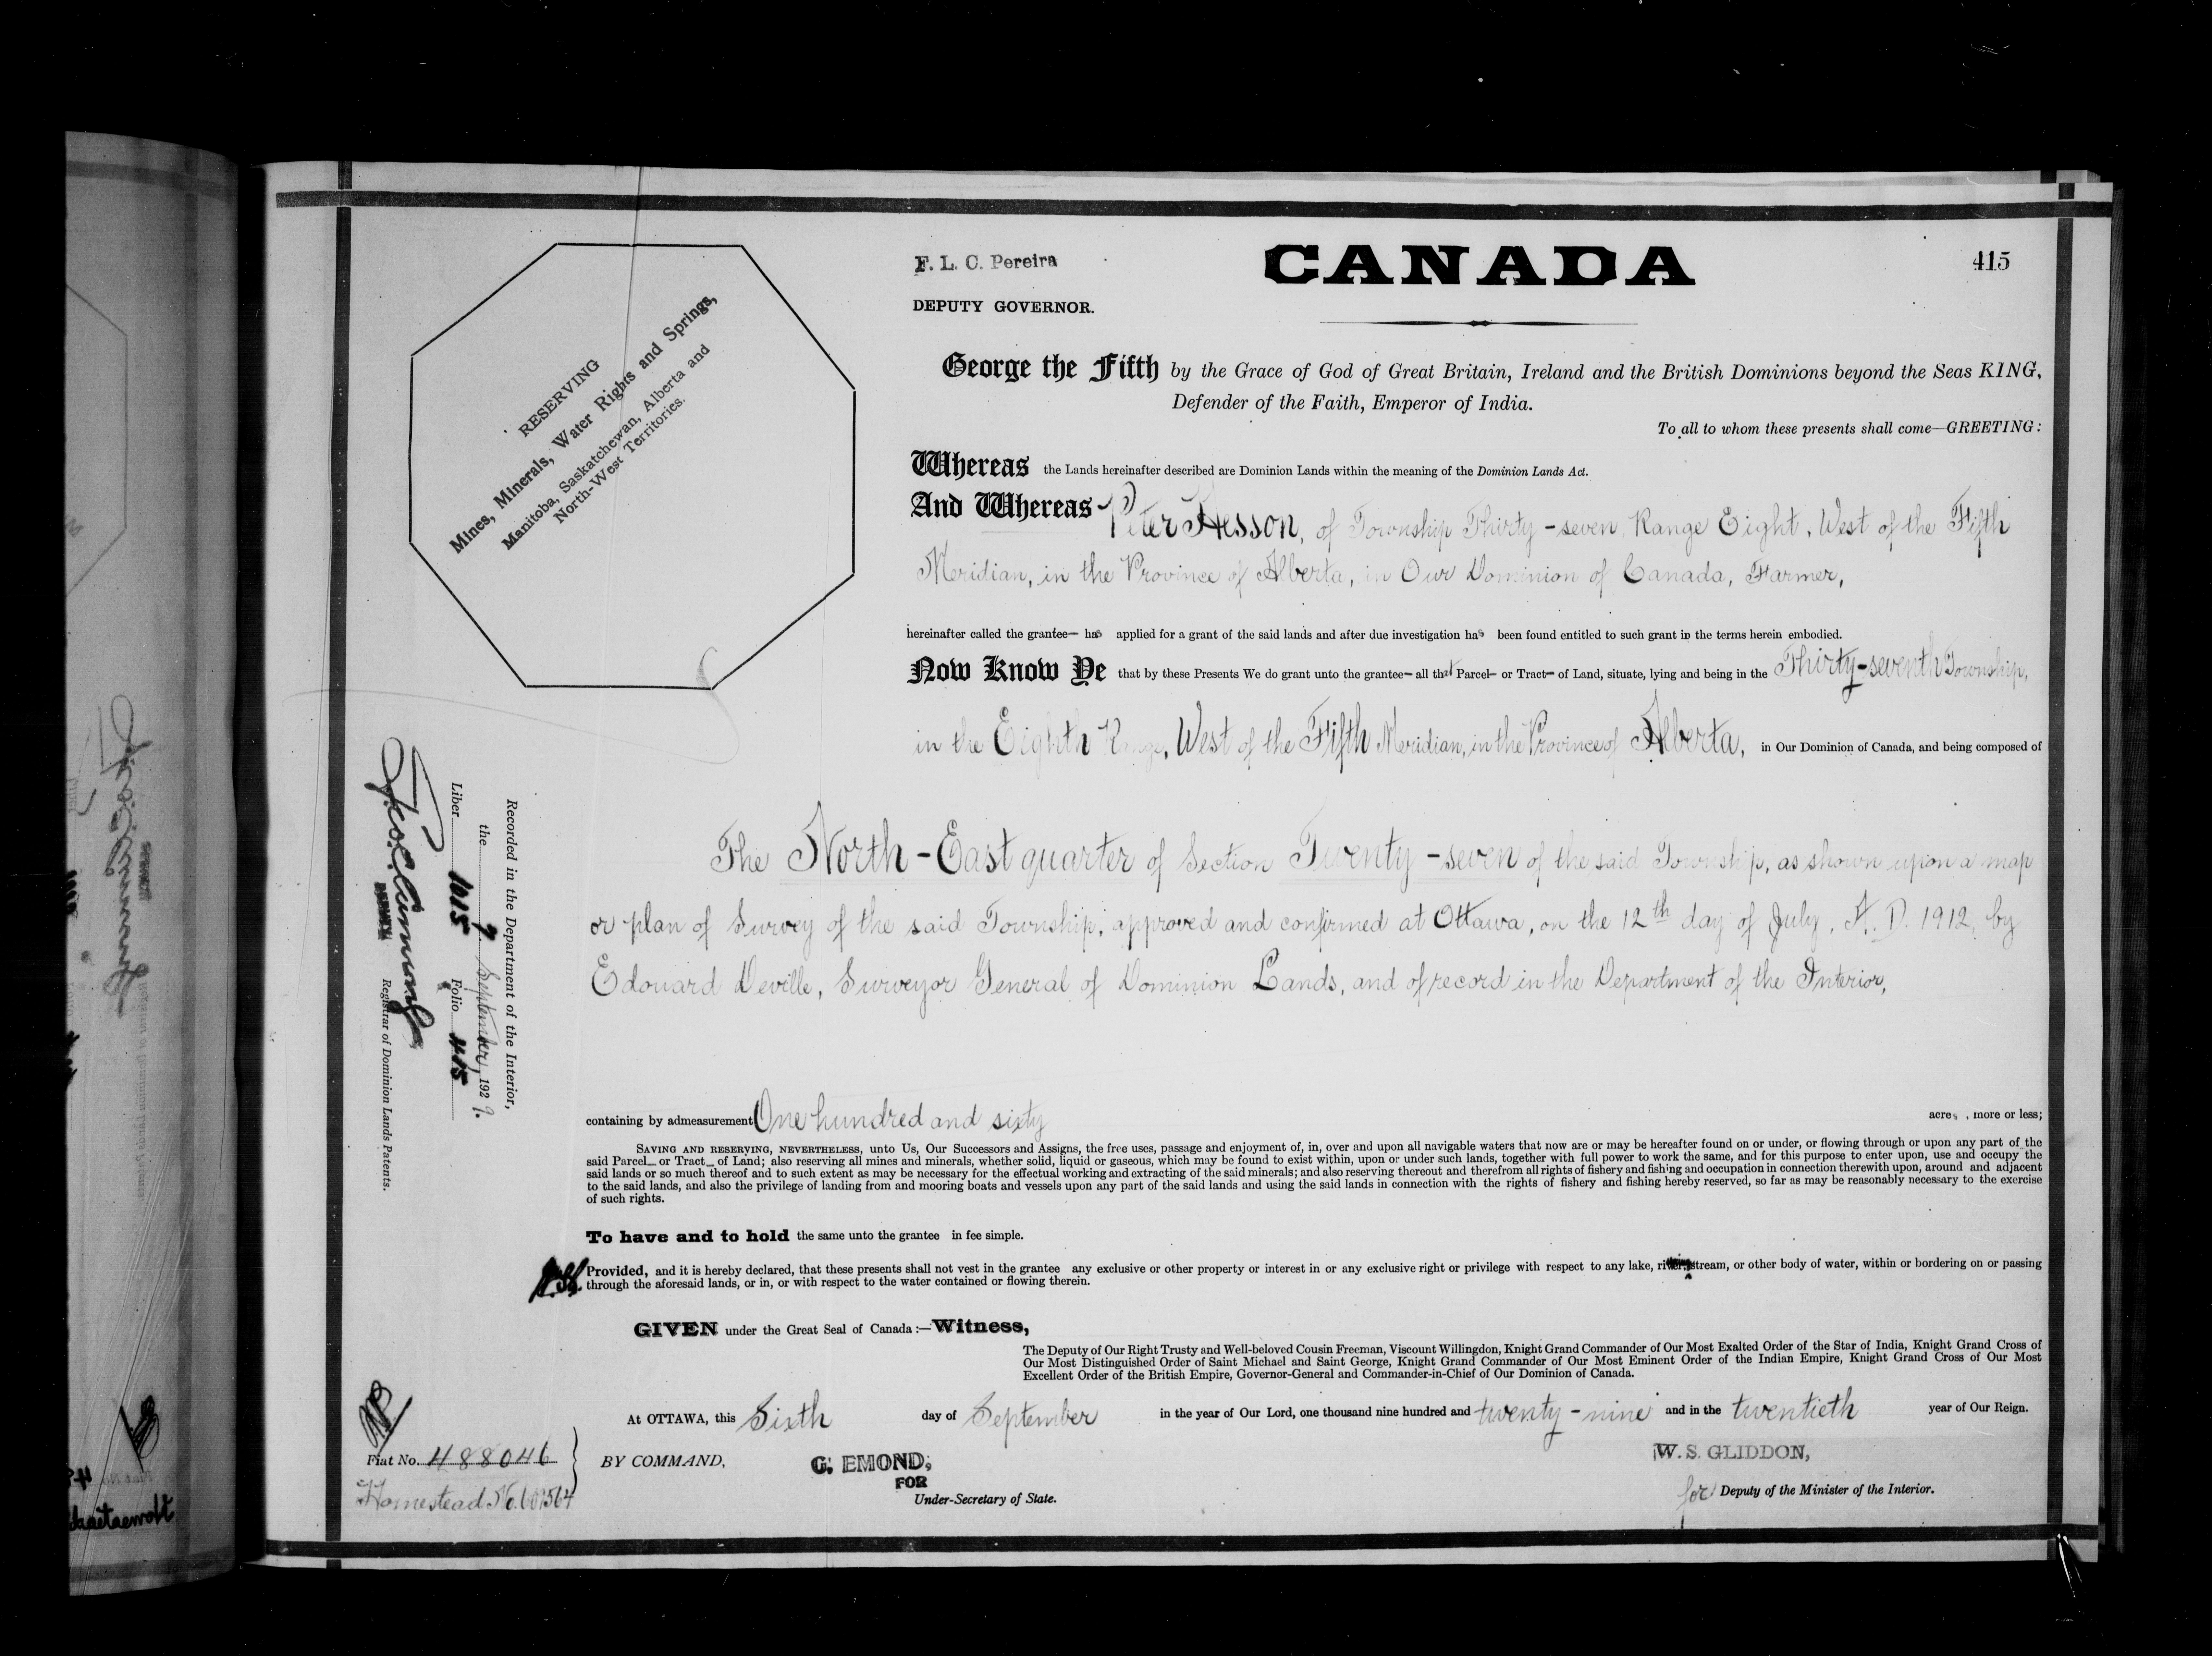 F. L. C. Pereira
DEPUTY GOVERNOR.
CANADA
415
RESERVING
Mines, Minerals, Water Rights and Springs,
Manitoba, Saskatchewan, Alberta and
North-West Territories.
George the Fifth by the Grace of God of Great Britain, Ireland and the British Dominions beyond the Seas KING,
Defender of the Faith, Emperor of India.
To all to whom these presents shall come—GREETING:
Whereas the Lands hereinafter described are Dominion Lands within the meaning of the Dominion Lands Act.
And Whereas Peter Hesson, of Township Thirty-seven, Range Eight, West of the Fifth
Meridian, in the Province of Alberta, in Our Dominion of Canada, Farmer,
hereinafter called the grantee— has applied for a grant of the said lands and after due investigation has been found entitled to such grant in the terms herein embodied.
Now Know Ye that by these Presents We do grant unto the grantee— all that Parcel— or Tract— of Land, situate, lying and being in the Thirty-seventh Township,
in the Eighth Range, West of the Fifth Meridian, in the Province of Alberta, in Our Dominion of Canada, and being composed of
The North-East quarter of Section Twenty-seven of the said Township, as shown upon a map
or plan of Survey of the said Township, approved and confirmed at Ottawa, on the 12th day of July, A. D. 1912, by
Edouard Deville, Surveyor General of Dominion Lands, and of record in the Department of the Interior,
containing by admeasurement One hundred and sixty acres, more or less;
SAVING AND RESERVING, NEVERTHELESS, unto Us, Our Successors and Assigns, the free uses, passage and enjoyment of, in, over and upon all navigable waters that now are or may be hereafter found on or under, or flowing through or upon any part of the
said Parcel— or Tract— of Land; also reserving all mines and minerals, whether solid, liquid or gaseous, which may be found to exist within, upon or under such lands, together with full power to work the same, and for this purpose to enter upon, use and occupy the
said lands or so much thereof and to such extent as may be necessary for the effectual working and extracting of the said minerals; and also reserving thereout and therefrom all rights of fishery and fishing and occupation in connection therewith upon, around and adjacent
to the said lands, and also the privilege of landing from and mooring boats and vessels upon any part of the said lands and using the said lands in connection with the rights of fishery and fishing hereby reserved, so far as may be reasonably necessary to the exercise
of such rights.
To have and to hold the same unto the grantee in fee simple.
Provided, and it is hereby declared, that these presents shall not vest in the grantee any exclusive or other property or interest in or any exclusive right or privilege with respect to any lake, river, stream, or other body of water, within or bordering on or passing
through the aforesaid lands, or in, or with respect to the water contained or flowing therein.
GIVEN under the Great Seal of Canada:—Witness,
The Deputy of Our Right Trusty and Well-beloved Cousin Freeman, Viscount Willingdon, Knight Grand Commander of Our Most Exalted Order of the Star of India, Knight Grand Cross of
Our Most Distinguished Order of Saint Michael and Saint George, Knight Grand Commander of Our Most Eminent Order of the Indian Empire, Knight Grand Cross of Our Most
Excellent Order of the British Empire, Governor-General and Commander-in-Chief of Our Dominion of Canada.
At OTTAWA, this Sixth day of September in the year of Our Lord, one thousand nine hundred and twenty-nine and in the twentieth year of Our Reign.
BY COMMAND,
G. EMOND,
FOR
Under-Secretary of State.
W. S. GLIDDON,
for Deputy of the Minister of the Interior.
Fiat No. 488046
Homestead No.
Recorded in the Department of the Interior,
the 7 September, 1929.
Liber 1015 Folio 415
Registrar of Dominion Lands Patents.